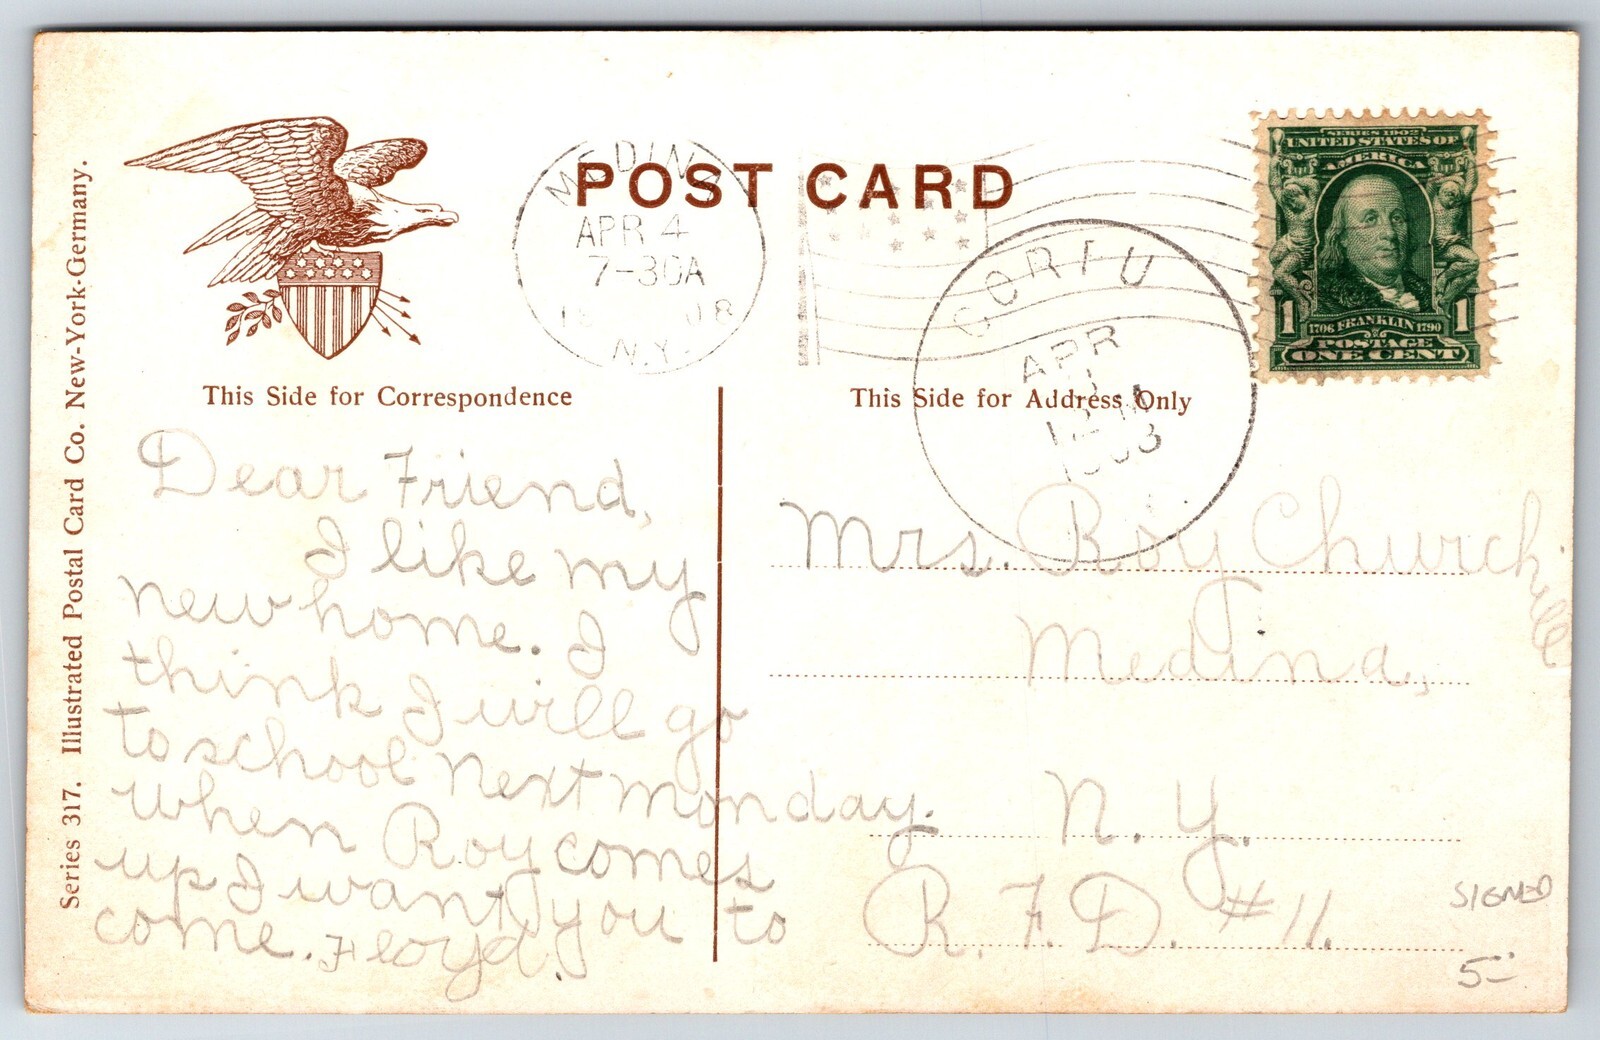 POST CARD
MEDINA
APR 4
7-30A
N.Y.
CORFU
APR
SERIES 1902
UNITED STATES OF
AMERICA
1 1706 FRANKLIN 1790 1
POSTAGE
ONE CENT
Series 317. Illustrated Postal Card Co. New-York-Germany.
This Side for Correspondence
Dear Friend,
I like my
new home. I
think I will go
to school next monday.
when Roy comes
up I want you to
come. Floyd.
This Side for Address Only
Mrs. Roy Churchill
Medina,
N. Y.
R. F. D. #11.
SIGNED
5=